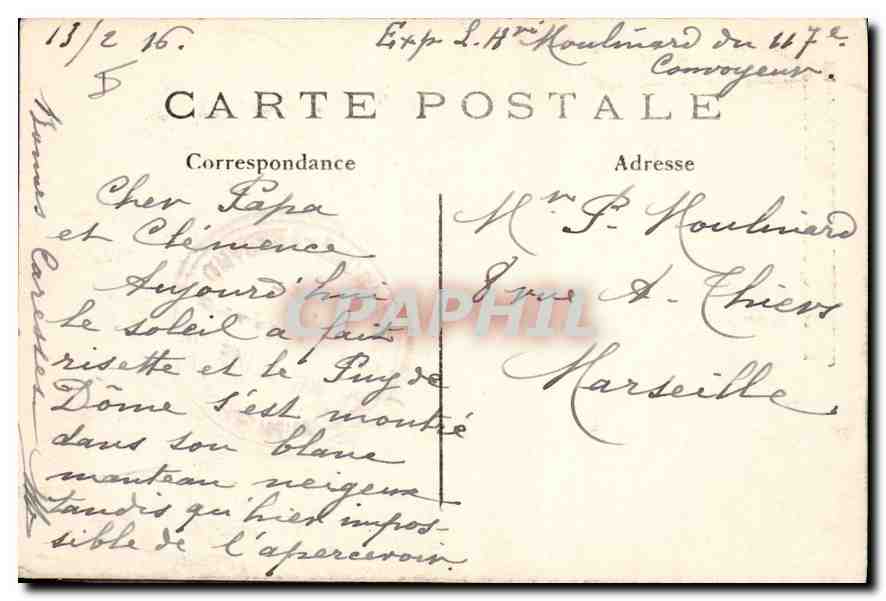 13/2 16.
Exp L. Hri Moulinard du 117e
Convoyeur.
CARTE POSTALE
Correspondance
Adresse
Cher Papa
et Clémence
Aujourd'hui
le soleil a fait
risette et le Puy de
Dôme s'est montré
dans son blanc
manteau neigeux
tandis qu'hier impos-
sible de l'apercevoir.
Bonnes Caresses
Mr P. Moulinard
8 rue A. Thiers
Marseille
CPAPHIL